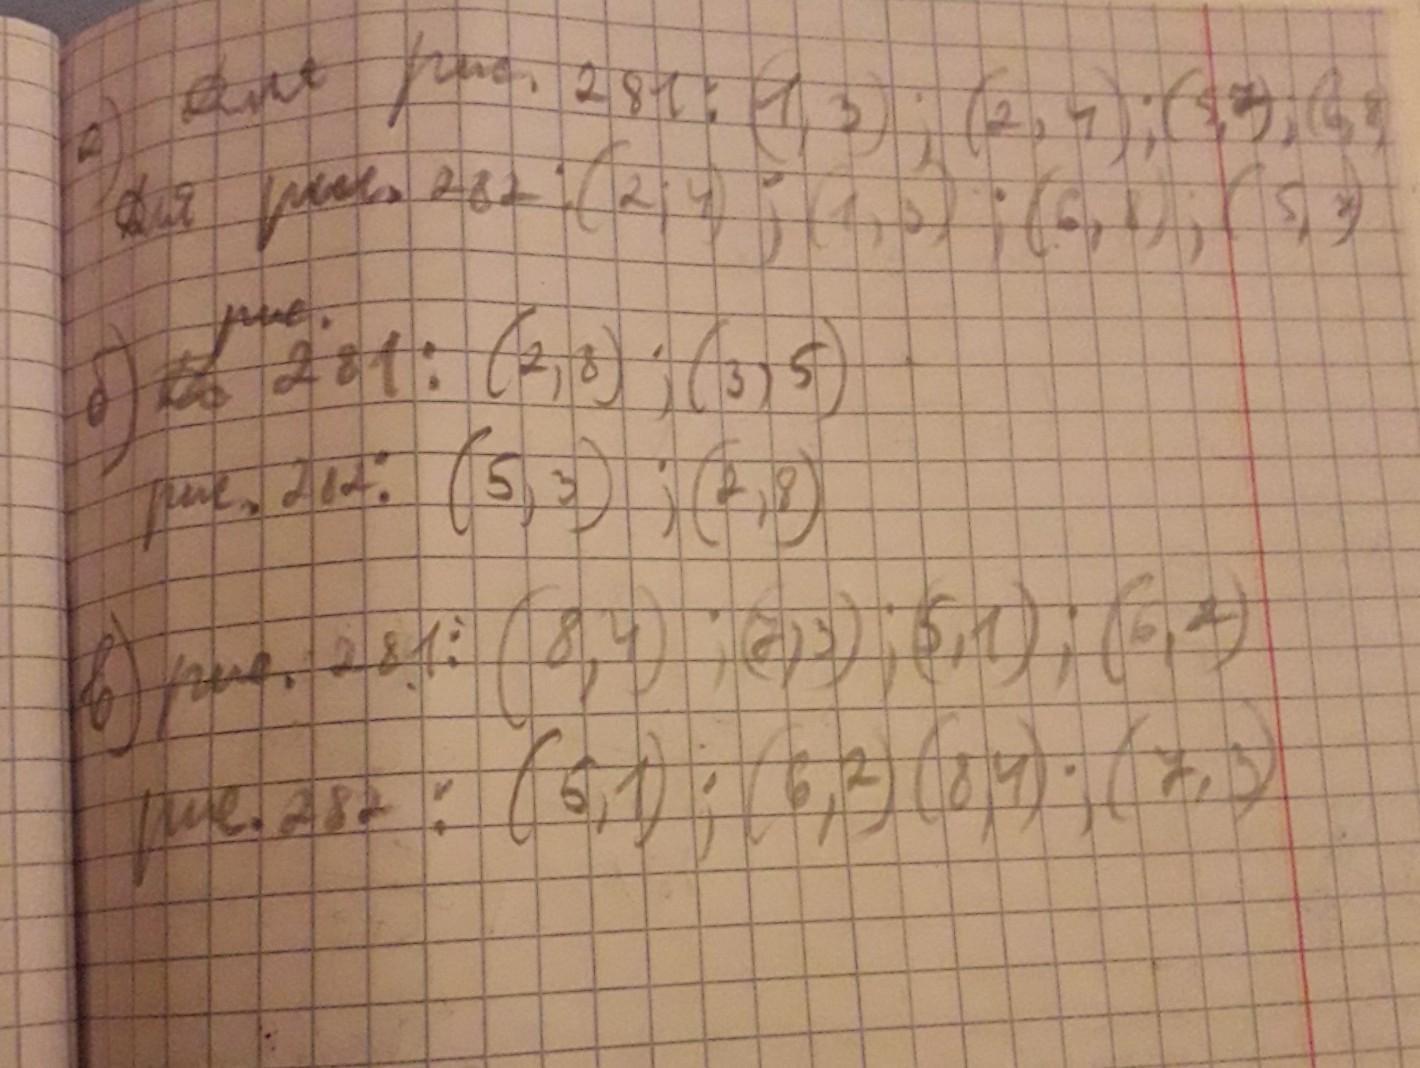 а) Для рис. 281: (1,3); (2,4); (5,7); (6,8)
Для рис. 282: (2,4); (1,3); (6,8); (5,7)
рис.
б) 281: (2,8); (3,5)
рис. 282: (5,3); (2,8)
в) рис. 281: (8,4); (7,3); (5,1); (6,2)
рис. 282: (5,1); (6,2) (8,4); (7,3)